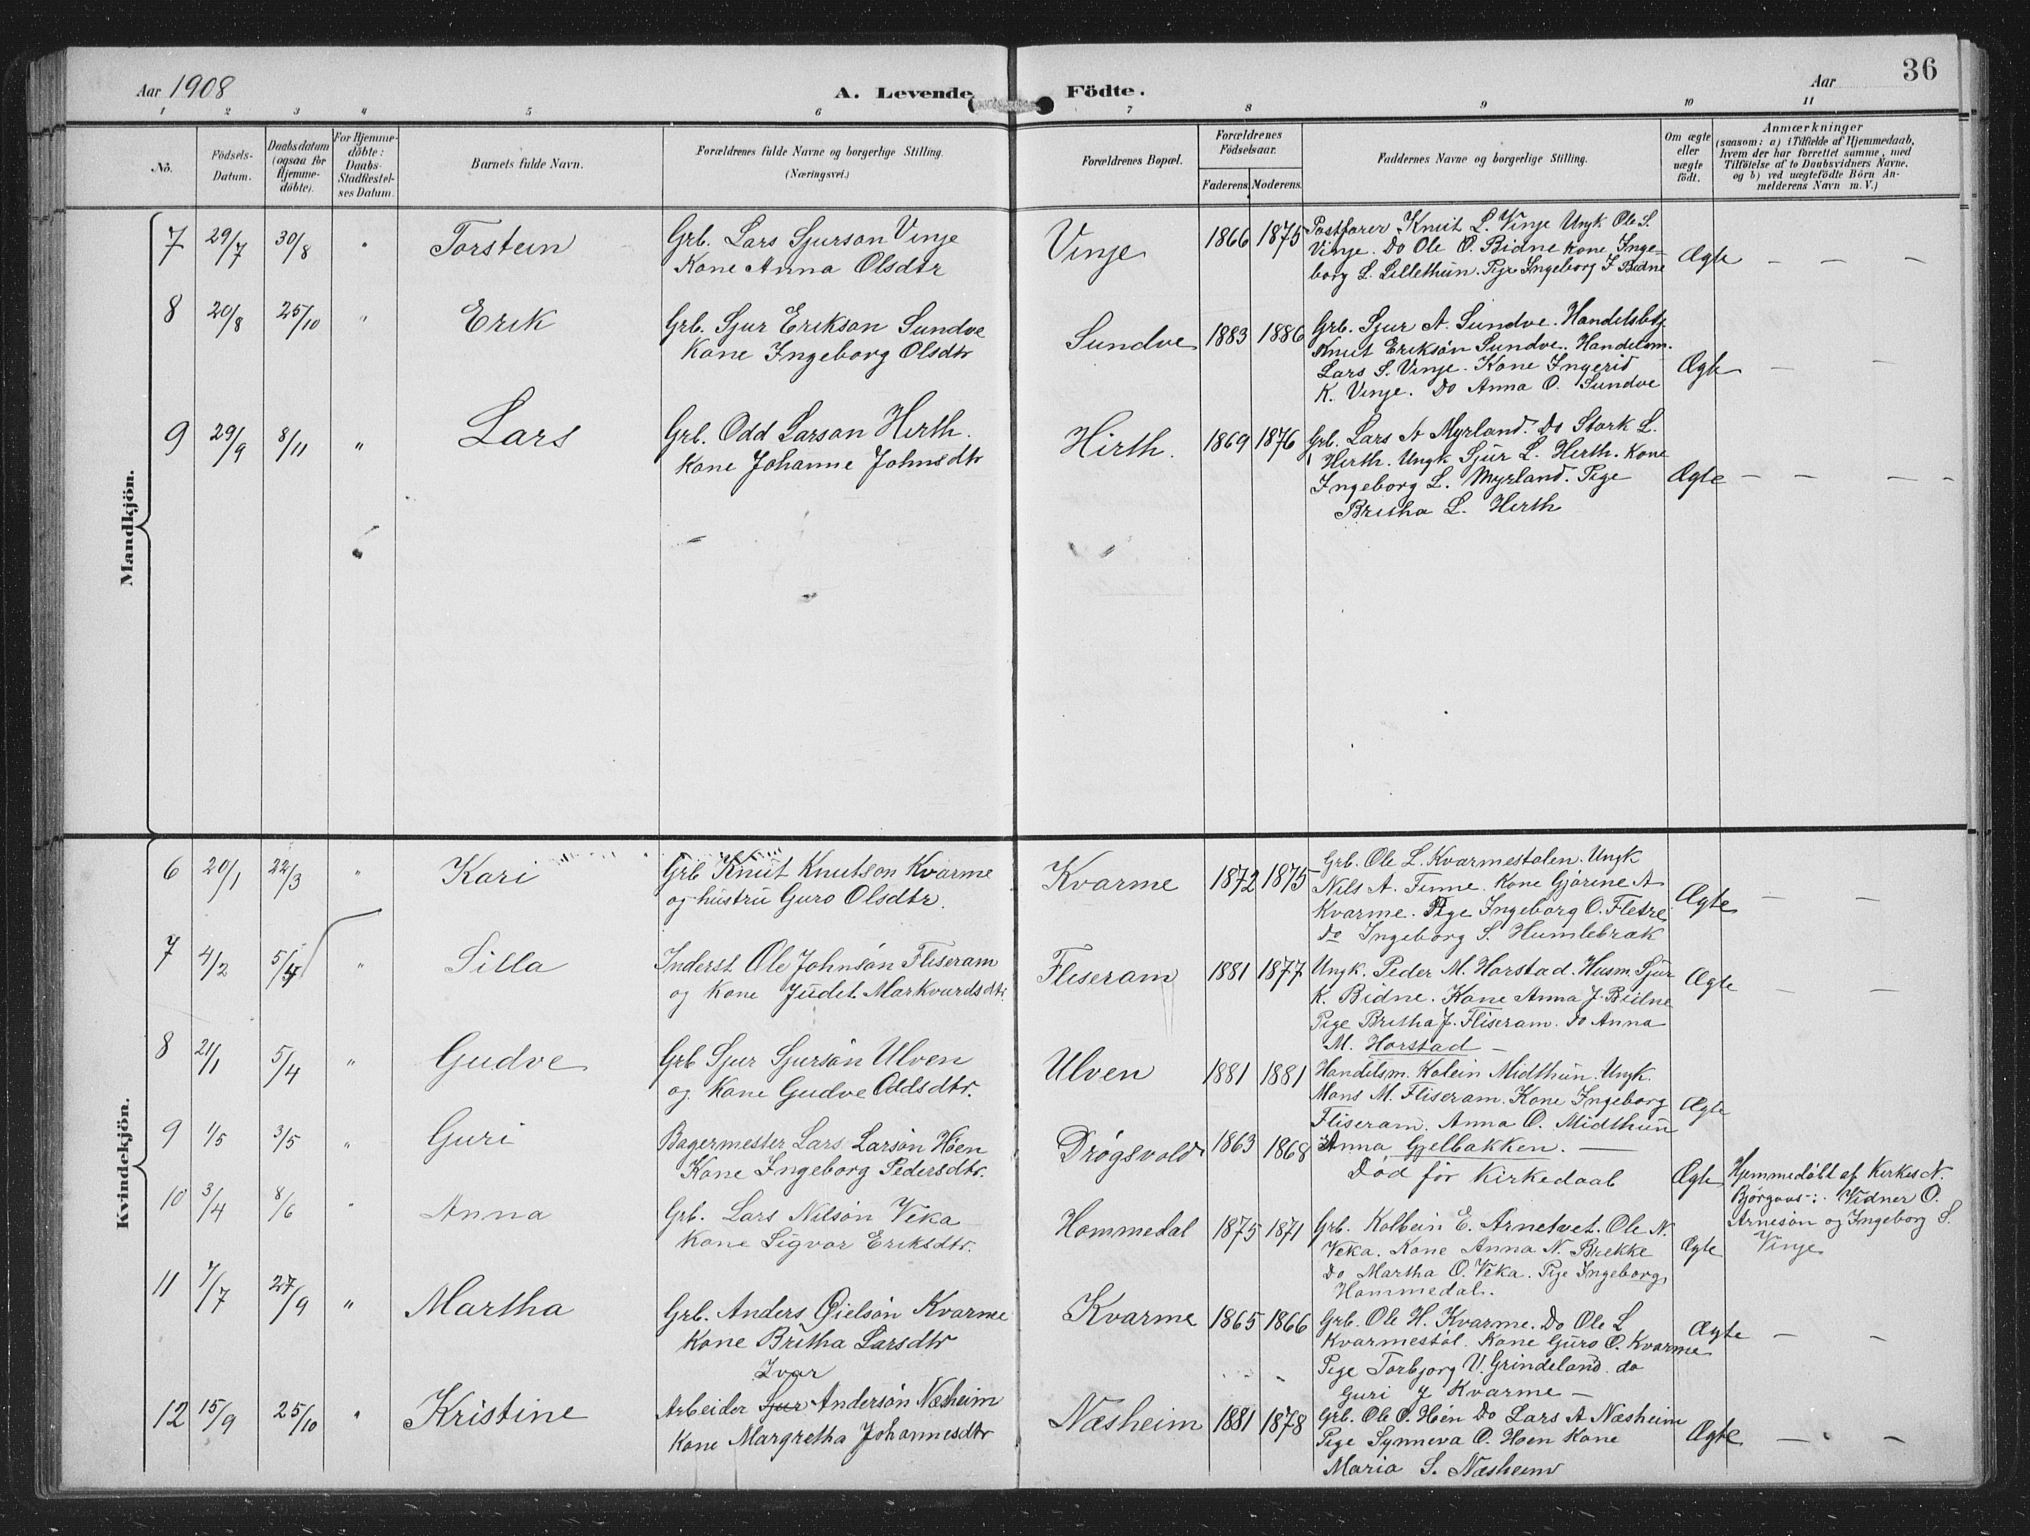 Aar 1908
A. Levende Födte.
Aar
36
1 2 3 4 5 6 7 8 9 10 11
No.
Födsels-
Datum.
Daabsdatum
(ogsaa for
Hjemme-
döbte).
For Hjemme-
döbte:
Daabs-
Stadfæstel-
ses Datum.
Barnets fulde Navn.
Forældrenes fulde Navne og borgerlige Stilling.
(Næringsvei.)
Forældrenes Bopæl.
Forældrenes
Födselsaar.
Faderens. Moderens.
Faddernes Navne og borgerlige Stilling.
Om ægte
eller
uægte
födt.
Anmærkninger
(saasom: a) i Tilfælde af Hjemmedaab,
hvem der har forrettet samme, med
Tilföielse af to Daabsvidners Navne,
og b) ved uægtefödte Börn An-
melderens Navn m. V.)
Mandkjön.
7 29/7 30/8 " Torstein
Grb. Lars Sjurson Vinje
Kone Anna Olsdtr
Vinje 1866 1875
Postfører Knut L. Vinje Ungk Ole S.
Vinje. Do Ole O. Bidne Kone Inge-
borg L. Lillethun. Pige Ingeborg I Bidne
Ægte – – –
8 20/8 25/10 " Erik
Grb. Sjur Erikson Sundve
Kone Ingeborg Olsdtr
Sundve 1883 1886
Grb. Sjur A. Sundve. Handelsbtj
Knut Eriksön Sundve. Handelsm.
Lars S. Vinje. Kone Ingerid
K. Vinje. Do Anna O. Sundve
Ægte – –
9 29/9 8/11 " Lars
Grb. Odd Larson Hirth.
Kone Johanne Johnsdtr
Hirth. 1869 1876
Grb. Lars A Myrland. Do Stark L.
Hirth. Ungk Sjur L. Hirth. Kone
Ingeborg L. Myrland. Pige
Britha L. Hirth
Ægte – – – –
Kvindekjön.
6 20/1 22/3 " Kari
Grb Knut Knutson Kvarme
og hustru Guro Olsdtr.
Kvarme 1872 1875
Grb. Ole L. Kvarmestølen. Ungk
Nils A. Finne. Kone Gjørine A
Kvarme. Pige Ingeborg O. Fletre
do Ingeborg S. Humlebræk
Ægte – – –
7 4/2 5/4 " Silla
Inderst Ole Johnsön Fliseram
og Kone Judit Markvardsdtr
Fliseram 1881 1877
Ungk. Peder M. Horstad. Husm. Sjur
K. Bidne. Kone Anna J. Bidne
Pige Britha J. Fliseram. do Anna
M. Horstad –
Ægte – – –
8 21/1 5/4 " Gudve
Grb Sjur Sjursön Ulven
og Kone Gudve Oddsdtr.
Ulven 1881 1881
Handelsm. Kolein Midthun. Ungk.
Mons M. Fliseram. Kone Ingeborg
Fliseram. Anna O. Midthun
Anna Gjelbakken. –
Ægte
9 1/5 3/5 " Guri
Bagermester Lars Larsön Höen
Kone Ingeborg Pedersdtr.
Drøgsvold 1863 1868
Död før Kirkedaab
Ægte
Hjemmedöbt af Kirkes N.
Bjørgaas: Vidner O.
Arnesön og Ingeborg S.
Vinje
10 3/4 8/6 " Anna
Grb. Lars Nilsön Veka
Kone Sigvor Eriksdtr.
Hommedal 1875 1871
Grb. Kolbein E. Arnetvet. Ole N.
Veka. Kone Anna N. Brekke
Do Martha O. Veka. Pige Ingeborg
Hommedal.
Ægte
11 7/7 27/9 " Martha
Grb. Anders Gjelsön Kvarme
Kone Britha Larsdtr
Kvarme 1865 1866
Grb. Ole H. Kvarme. Do Ole L
Kvarmestöl. Kone Guro O. Kvarme
Pige Torbjorg V. Grindeland. do
Guri J Kvarme –
Ægte – –
12 15/9 25/10 " Kristine
Ivar
Arbeider Sjur Andersön Næsheim
Kone Margretha Johannesdtr
Næsheim 1881 1878
Grb. Ole O. Höen Do Lars A Næsheim
Pige Synneva O. Høen Kone
Maria S. Næsheim
Ægte – –